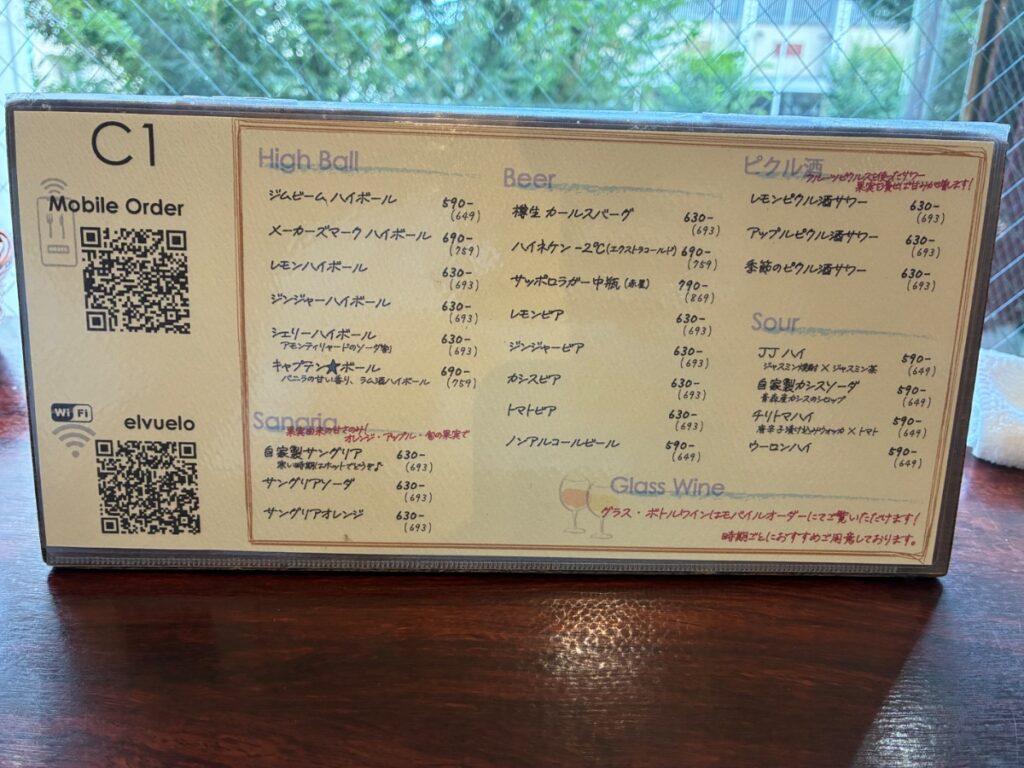 C1
Mobile Order
Wi Fi
elvuelo
High Ball
ジムビーム ハイボール 590-
(649)
メーカーズマーク ハイボール 690-
(759)
レモンハイボール 630-
(693)
ジンジャーハイボール 630-
(693)
シェリーハイボール 630-
アモンティリャードのソーダ割 (693)
キャプテン★ボール 690-
バニラの甘い香り、ラム酒ハイボール (759)
Sangria
果実由来の甘さのみ!
オレンジ・アップル・旬の果実で
自家製サングリア 630-
寒い時期はホットでどうぞ♪ (693)
サングリアソーダ 630-
(693)
サングリアオレンジ 630-
(693)
Beer
樽生 カールスバーグ 630-
(693)
ハイネケン -2℃(エクストラコールド) 690-
(759)
サッポロラガー中瓶(赤星) 790-
(869)
レモンビア 630-
(693)
ジンジャービア 630-
(693)
カシスビア 630-
(693)
トマトビア 630-
(693)
ノンアルコールビール 590-
(649)
Glass Wine
グラス・ボトルワインはモバイルオーダーにてご覧いただけます!
時期ごとにおすすめご用意しております。
ピクル酒
フルーツピクルスを使ったサワー
果実を潰せば甘みが増します!
レモンピクル酒サワー 630-
(693)
アップルピクル酒サワー 630-
(693)
季節のピクル酒サワー 630-
(693)
Sour
JJハイ 590-
ジャスミン焼酎×ジャスミン茶 (649)
自家製カシスソーダ 590-
青森産カシスのシロップ (649)
チリトマハイ 590-
唐辛子漬け込みウォッカ×トマト (649)
ウーロンハイ 590-
(649)